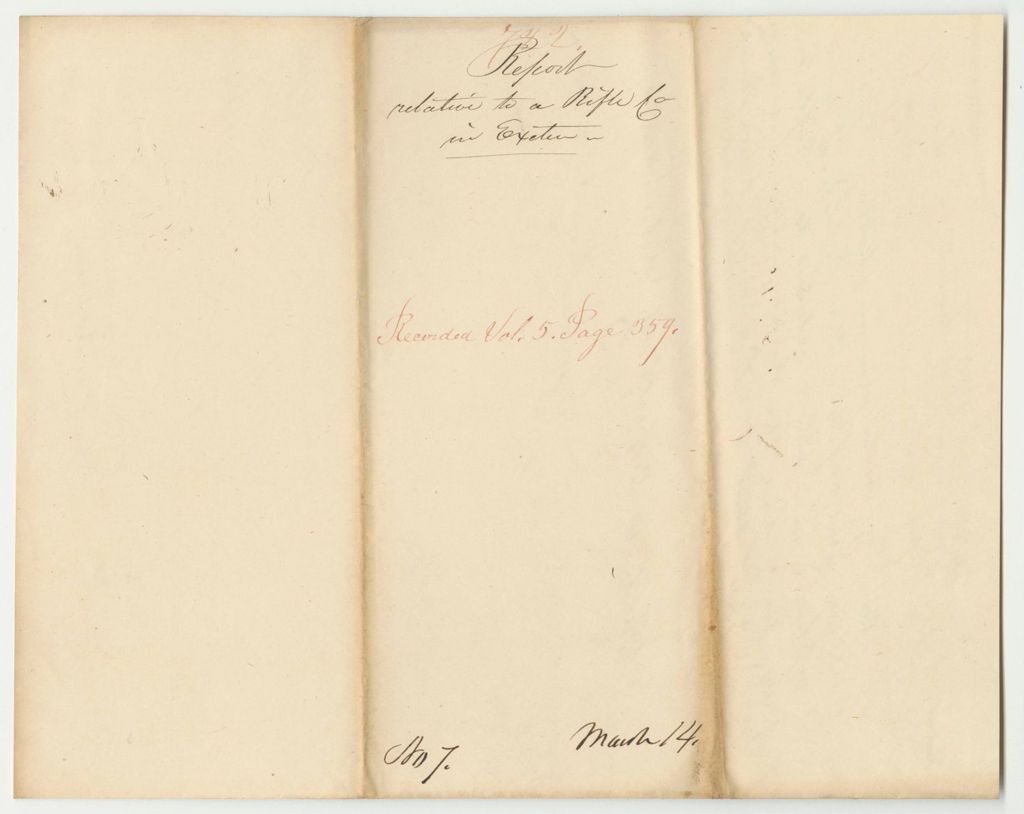 Report
relative to a Rifle Co
in Exeter -
Recorded Vol. 5. Page 359.
No 7.
March 14.